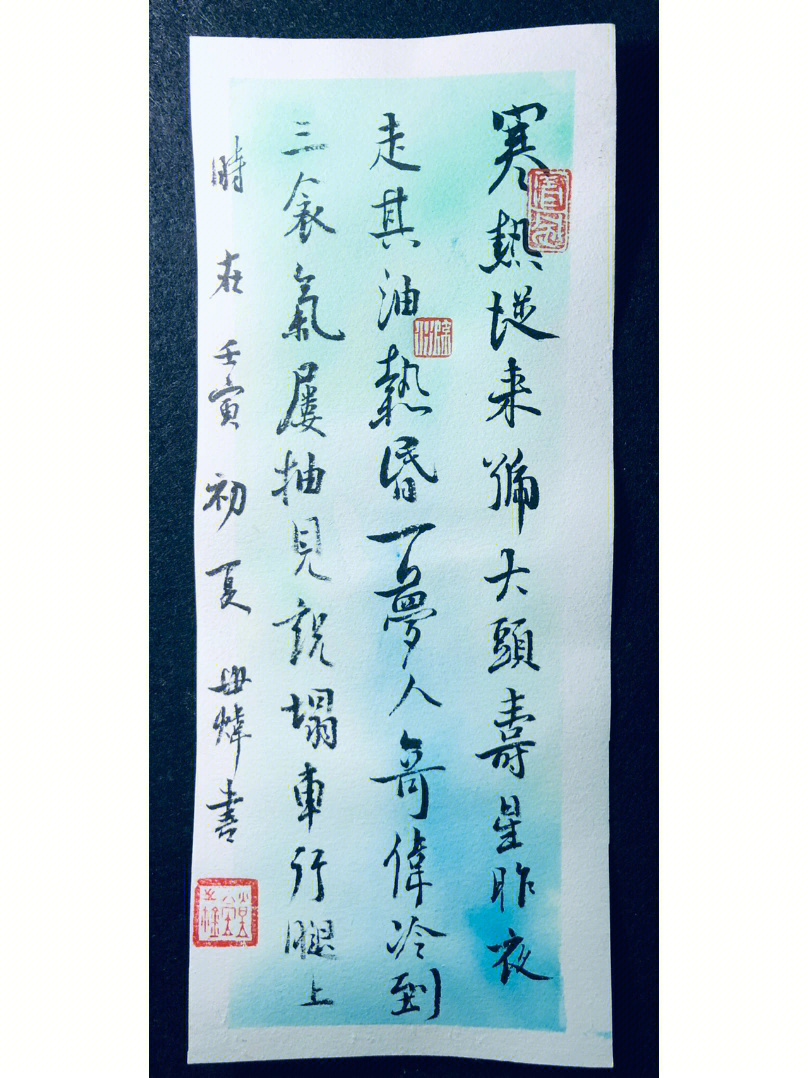 寒熱從来號大頭壽星昨夜
走其油熱昏一夢人奇偉冷到
三衾氣屢抽見說塌車行腿上
時在壬寅初夏世煒書